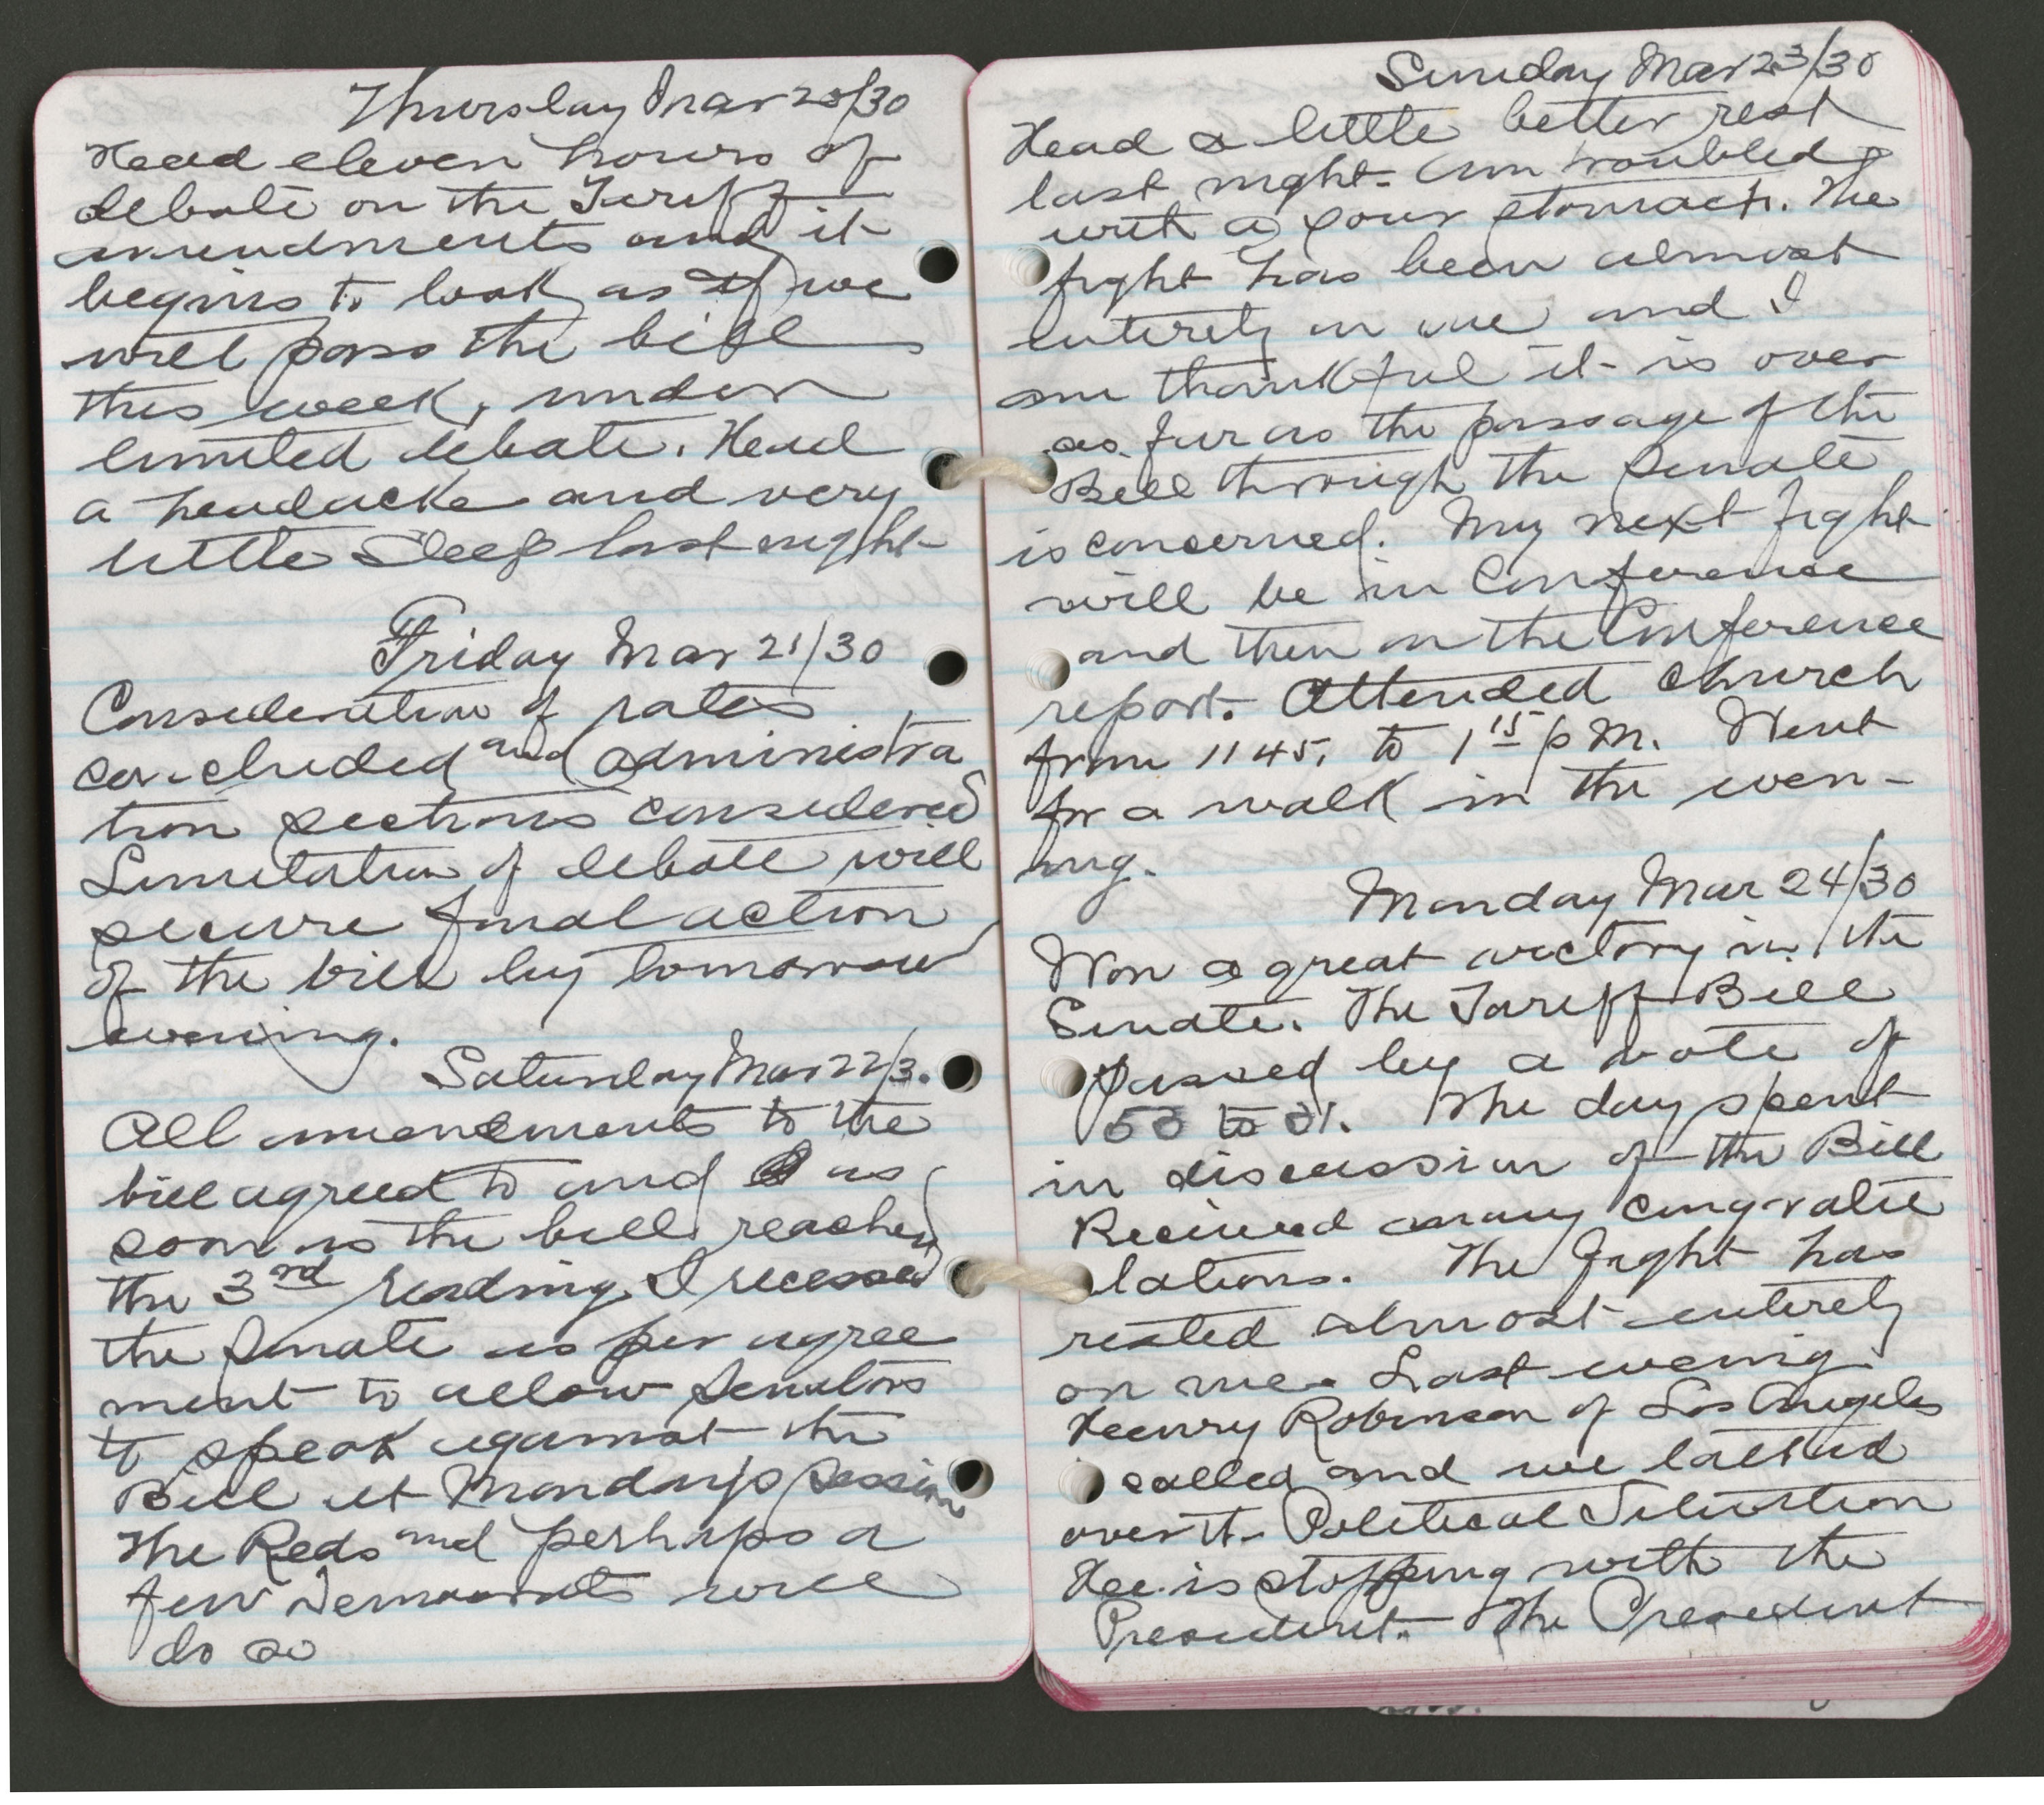 Thursday Mar 20/30
Head eleven hours of
debate on the Tariff
amendments and it
begins to look as if we
will pass the bill
this week, under
limited debate. Head
a headache and very
little Sleep last night
Friday Mar 21/30
Consideration of rates
concluded and administra
tion sections considered
Limitation of debate will
secure final action
of the bill by tomorrow
evening.
Saturday Mar 22/3.
All amendments to the
bill agreed to and as
soon as the bill reached
the 3rd reading I recessed
the Senate as per agree
ment to allow Senators
to speak against the
Bill at Monday's Session
The Reds and perhaps a
few Democrats will
do so
Sunday Mar 23/30
Head a little better rest
last night. Am troubled
with a sour stomach. The
fight has been almost
entirely on me and I
am thankful it is over
as far as the passage of the
Bill through the Senate
is concerned. My next fight
will be in Conference
and then on the Conference
report. Attended Church
from 11 45, to 1 15 p M. Went
for a walk in the even-
ing.
Monday Mar 24/30
Won a great victory in the
Senate. The Tariff Bill
passed by a vote of
53 to 31. The day spent
in discussion of the Bill
Recieved many congratu
lations. The fight has
rested almost entirely
on me. Last evening
Heenry Robinson of Los Angeles
called and we talked
over the Political Situation
Hee is stopping with the
President. The President